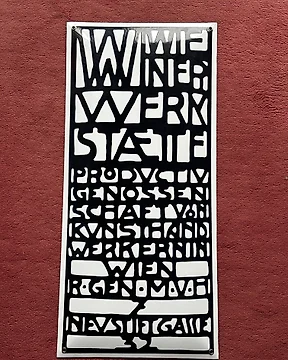 WW WIE
NER
WERK
STÆTTE
PRODVCTIV
GENOSSEN
SCHAFT VON
KVNSTHAND
WERKERN IN
WIEN
R·GEN·O·M·V·H
7
NEVSTIFTGASSE